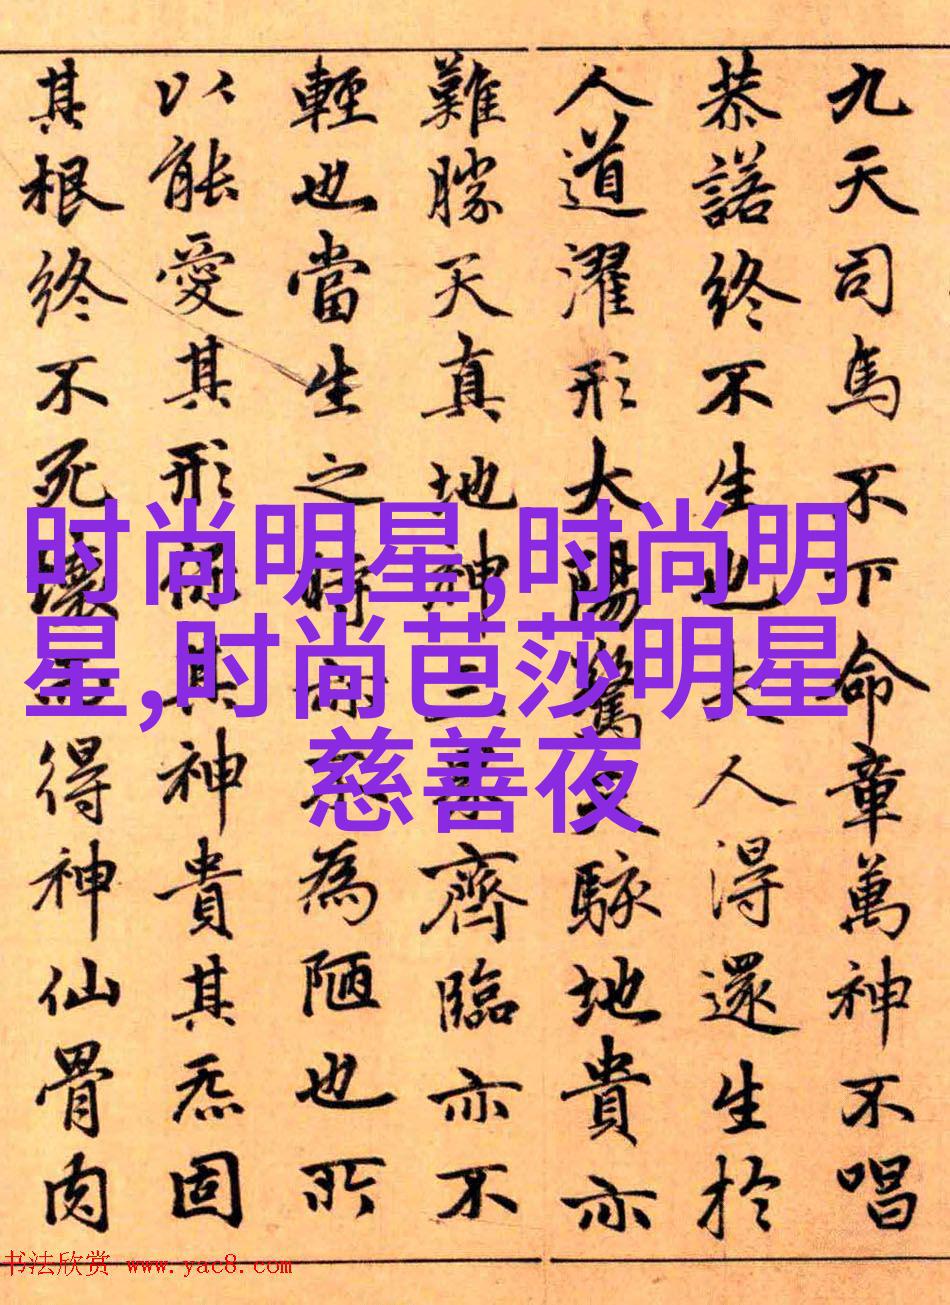 九天司馬不下命章萬神不唱
恭諾終不生也夫人得還生於
人道濯形大陽驚天駭地貴亦
難勝天真地神三界齊臨亦不
輕也當生之時亦不為陋也所
以能愛其形保其神貴其炁固
其根終不死壞而得神仙骨肉
时尚明星,时尚明
星,时尚芭莎明星
慈善夜
书法欣赏 www.yac8.com